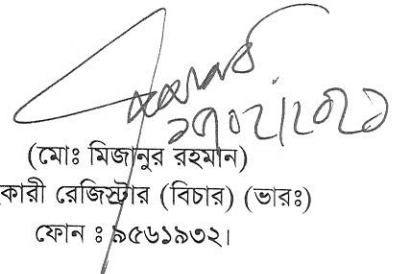 (মোঃ মিজানুর রহমান)
কারী রেজিস্ট্রার (বিচার) (ভারঃ)
ফোন ঃ ৯৫৬১৯৩২।